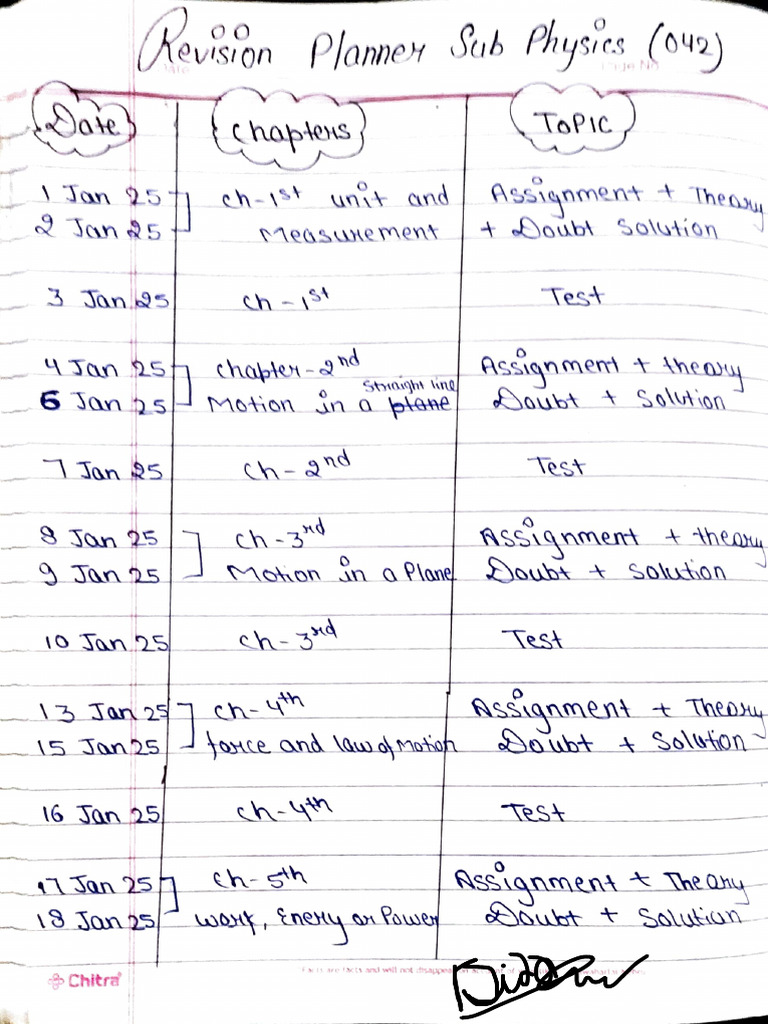 Revision Planner Sub Physics (042)
Date Chapters TOPIC
1 Jan 25 ch-1st unit and Assignment + Theory
2 Jan 25 Measurement + Doubt Solution
3 Jan 25 ch-1st Test
4 Jan 25 chapter-2nd Assignment + theory
6 Jan 25 Motion in a plane straight line Doubt + Solution
7 Jan 25 ch-2nd Test
8 Jan 25 ch-3rd Assignment + theory
9 Jan 25 Motion in a Plane Doubt + solution
10 Jan 25 ch-3rd Test
13 Jan 25 ch-4th Assignment + Theory
15 Jan 25 force and law of Motion Doubt + Solution
16 Jan 25 ch-4th Test
17 Jan 25 ch-5th Assignment + Theory
18 Jan 25 work, Enery or Power Doubt + Solution
Chitra
Facts are facts and will not disappear on account of